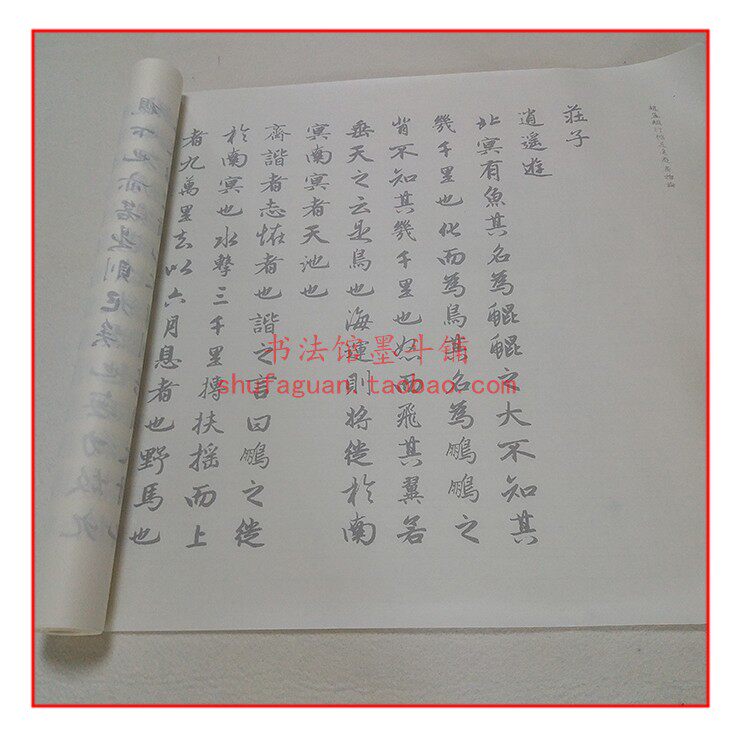 莊子
逍遥遊
北冥有魚其名為鯤鯤之大不知其
幾千里也化而為鳥其名為鵬鵬之
背不知其幾千里也怒而飛其翼若
垂天之云是鳥也海運則將徙於南
冥南冥者天池也
齊諧者志恠者也諧之言曰鵬之徙
於南冥也水擊三千里摶扶摇而上
者九萬里去以六月息者也野馬也
书法馆墨斗铺
shufaguan.taobao.com